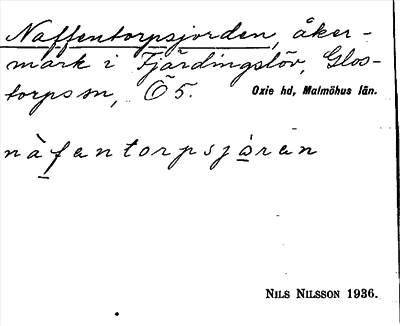 Naffentorpsjorden, åker-
mark i Fjärdingslöv, Glos-
torps sn, Ö 5. Oxie hd, Malmöhus län.
nàfantorpsjóran
NILS NILSSON 1936.